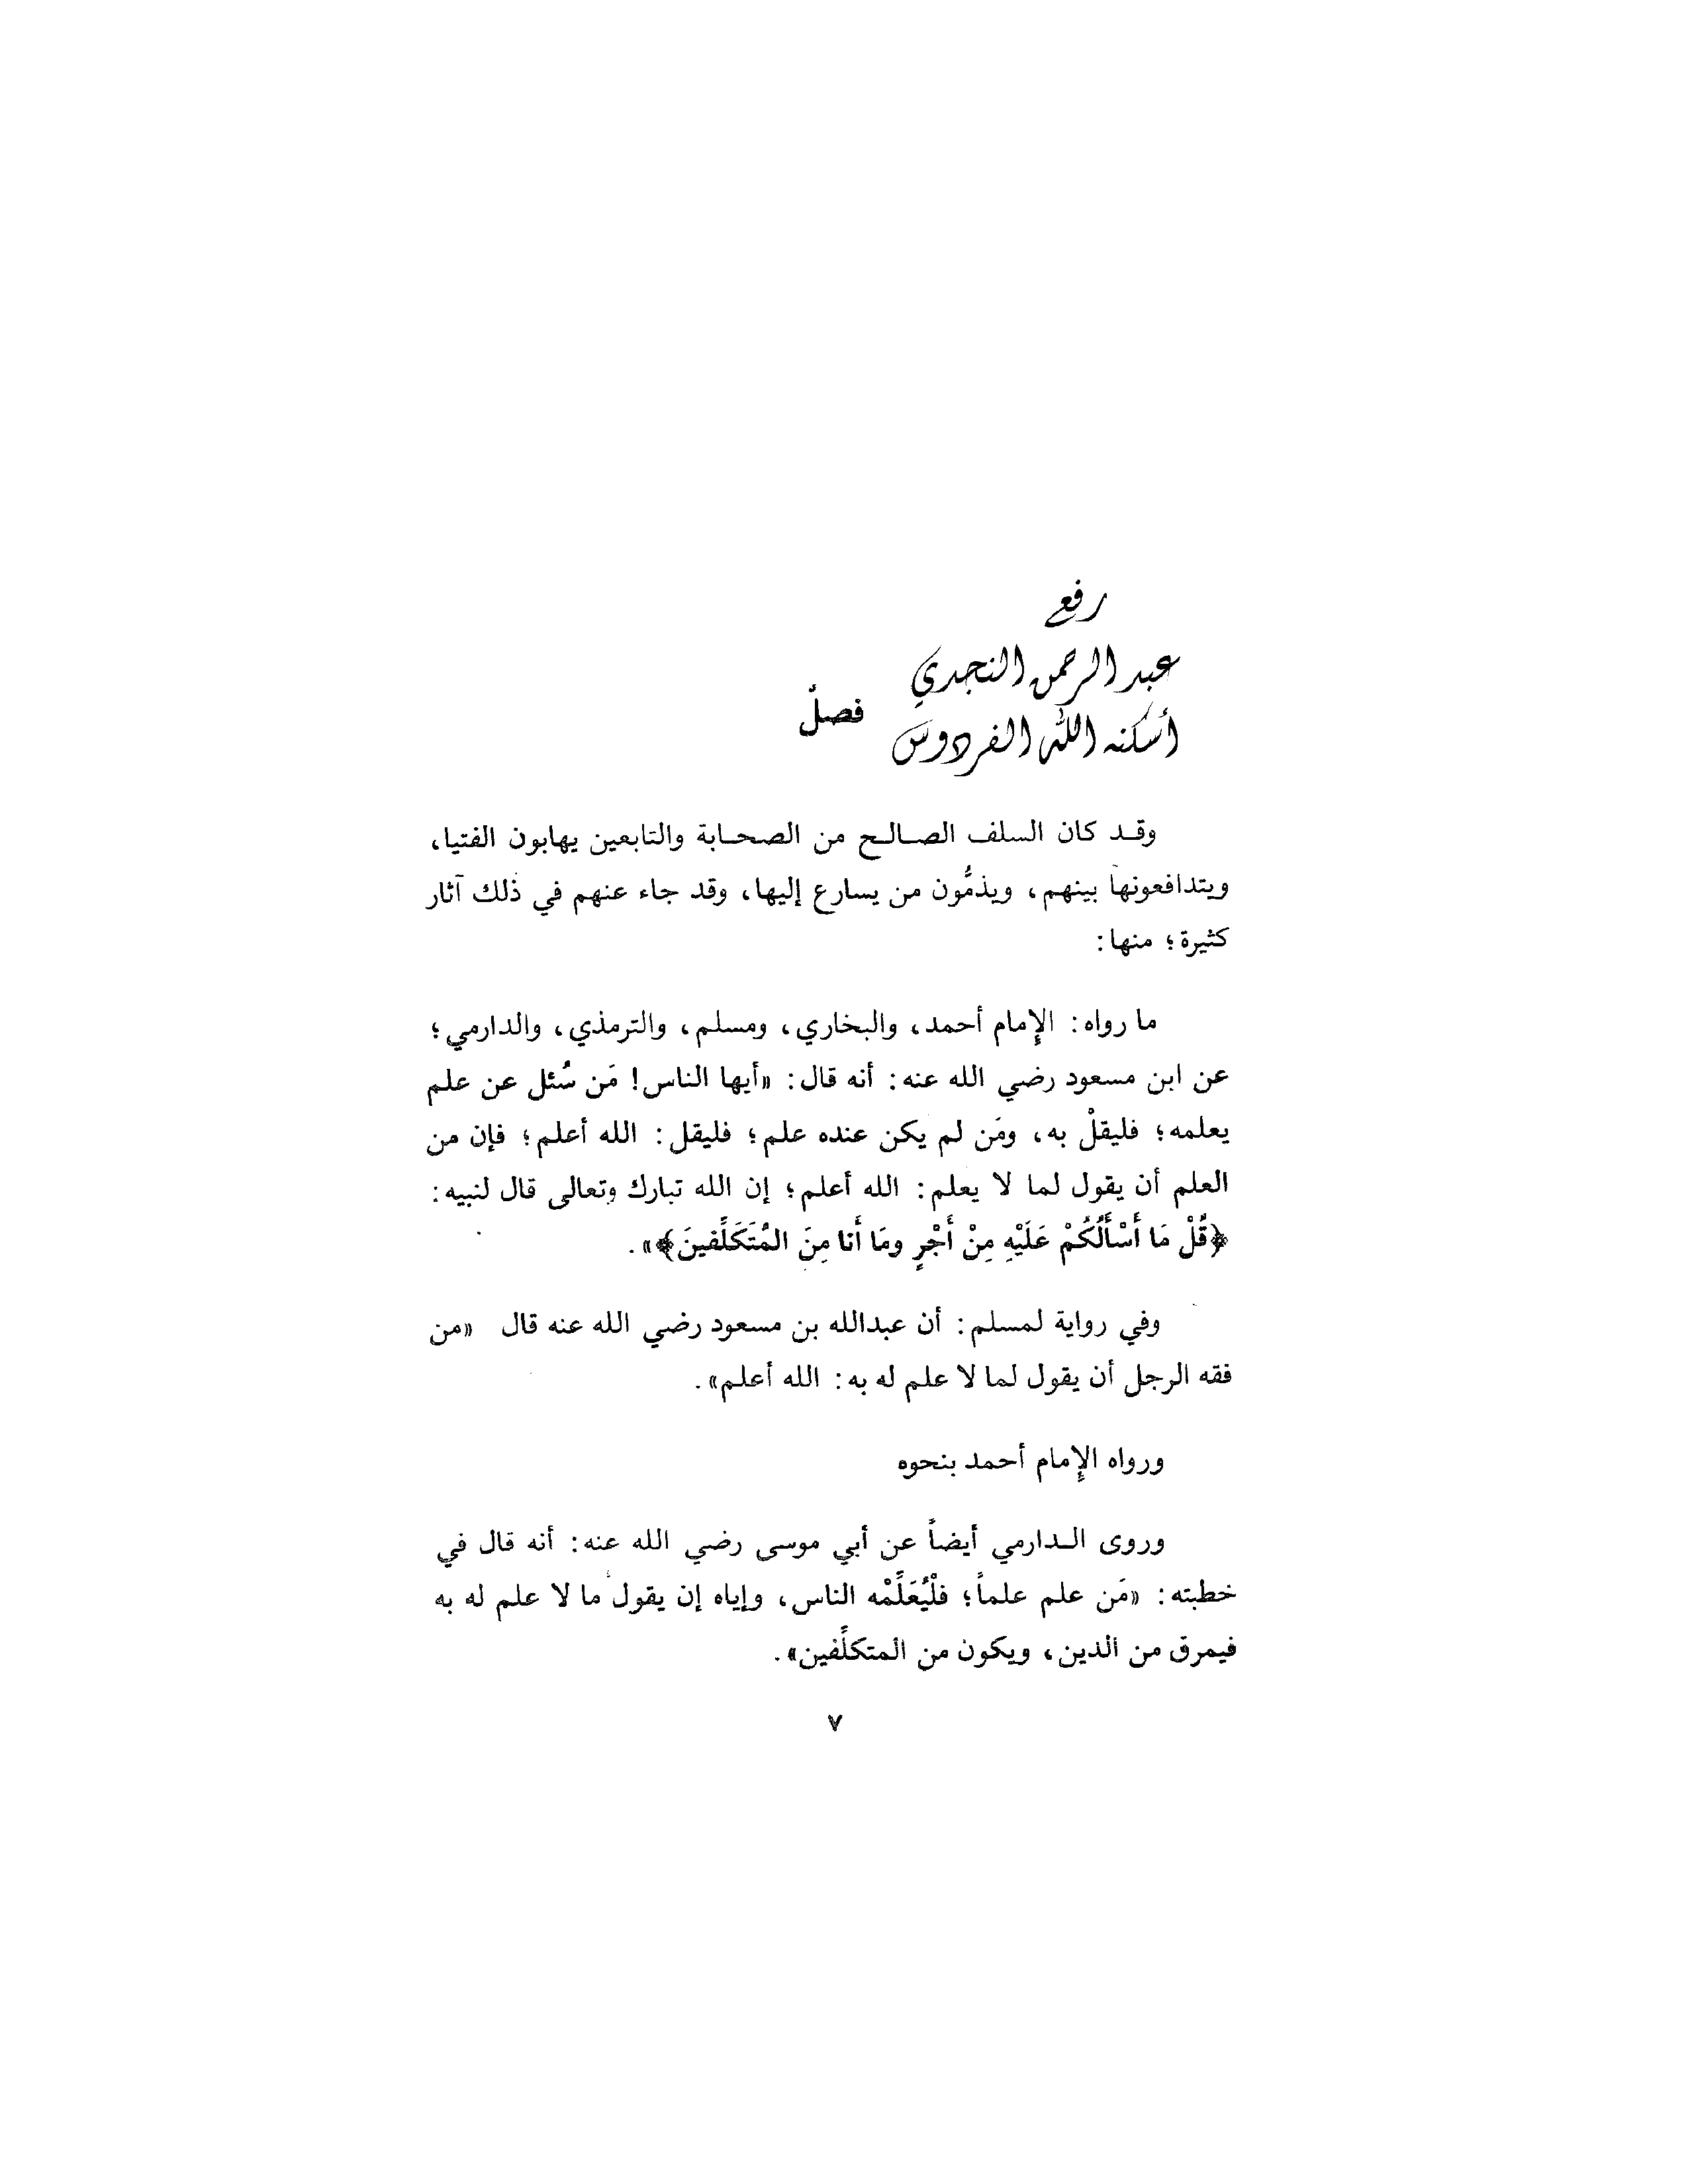 رفع
عبد الرحمن النجدي
أسكنه الله الفردوس
فصلٌ
وقـد كان السلف الصـالـح من الصحـابة والتابعين يهابون الفتيا،
ويتدافعونها بينهم، ويذمُّون من يسارع إليها، وقد جاء عنهم في ذلك آثار
كثيرة؛ منها:
ما رواه: الإمام أحمد، والبخاري، ومسلم، والترمذي، والدارمي؛
عن ابن مسعود رضي الله عنه: أنه قال: «أيها الناس! مَن سُئل عن علم
يعلمه؛ فليقلْ به، ومَن لم يكن عنده علم؛ فليقل: الله أعلم؛ فإن من
العلم أن يقول لما لا يعلم: الله أعلم؛ إن الله تبارك وتعالى قال لنبيه:
﴿قُلْ مَا أَسْأَلُكُمْ عَلَيْهِ مِنْ أَجْرٍ ومَا أَنا مِنَ المُتَكَلِّفينَ﴾».
وفي رواية لمسلم: أن عبدالله بن مسعود رضي الله عنه قال «من
فقه الرجل أن يقول لما لا علم له به: الله أعلم».
ورواه الإمام أحمد بنحوه
وروى الـدارمي أيضاً عن أبي موسى رضي الله عنه: أنه قال في
خطبته: «مَن علم علماً؛ فلْيُعَلِّمْه الناس، وإياه إن يقول ما لا علم له به
فيمرق من الدين، ويكون من المتكلِّفين».
٧